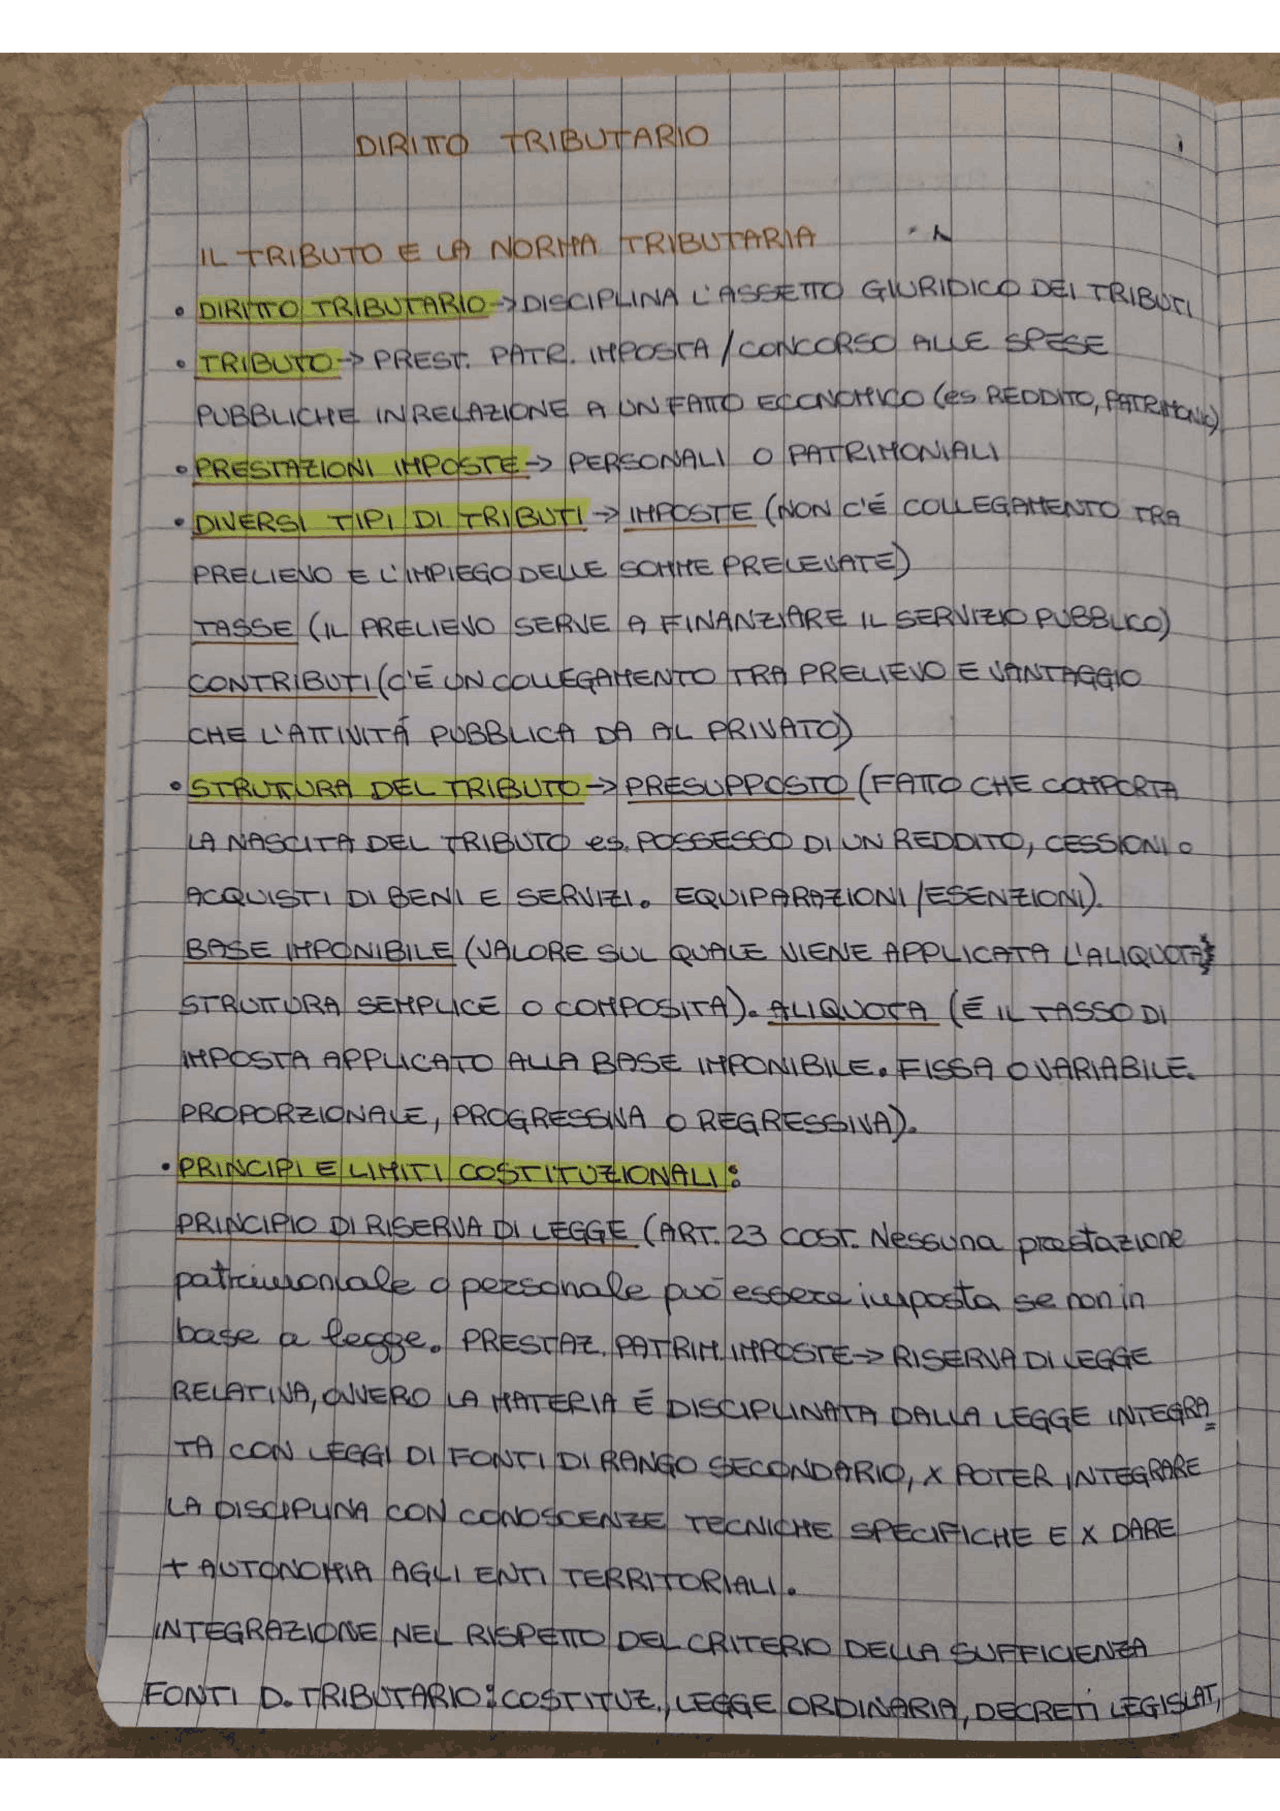 DIRITTO TRIBUTARIO
1
IL TRIBUTO E LA NORMA TRIBUTARIA
• DIRITTO TRIBUTARIO → DISCIPLINA L'ASSETTO GIURIDICO DEI TRIBUTI
• TRIBUTO → PREST. PATR. IMPOSTA / CONCORSO ALLE SPESE
PUBBLICHE IN RELAZIONE A UN FATTO ECONOMICO (es REDDITO, PATRIMONIO)
• PRESTAZIONI IMPOSTE → PERSONALI O PATRIMONIALI
• DIVERSI TIPI DI TRIBUTI → IMPOSTE (NON C'É COLLEGAMENTO TRA
PRELIEVO E L'IMPIEGO DELLE SOMME PRELEVATE)
TASSE (IL PRELIEVO SERVE A FINANZIARE IL SERVIZIO PUBBLICO)
CONTRIBUTI (C'É UN COLLEGAMENTO TRA PRELIEVO E VANTAGGIO
CHE L'ATTIVITÁ PUBBLICA DA AL PRIVATO)
• STRUTTURA DEL TRIBUTO → PRESUPPOSTO (FATTO CHE COMPORTA
LA NASCITA DEL TRIBUTO es. POSSESSO DI UN REDDITO, CESSIONI O
ACQUISTI DI BENI E SERVIZI. EQUIPARAZIONI/ESENZIONI).
BASE IMPONIBILE (VALORE SUL QUALE VIENE APPLICATA L'ALIQUOTA
STRUTTURA SEMPLICE O COMPOSITA). ALIQUOTA (É IL TASSO DI
IMPOSTA APPLICATO ALLA BASE IMPONIBILE. FISSA O VARIABILE.
PROPORZIONALE, PROGRESSIVA O REGRESSIVA).
• PRINCIPI E LIMITI COSTITUZIONALI:
PRINCIPIO DI RISERVA DI LEGGE (ART. 23 COST. Nessuna prestazione
patrimoniale o personale può essere imposta se non in
base a legge. PRESTAZ. PATRIM. IMPOSTE → RISERVA DI LEGGE
RELATIVA, OVVERO LA MATERIA É DISCIPLINATA DALLA LEGGE INTEGRA
TA CON LEGGI DI FONTI DI RANGO SECONDARIO, X POTER INTEGRARE
LA DISCIPLINA CON CONOSCENZE TECNICHE SPECIFICHE E X DARE
+ AUTONOMIA AGLI ENTI TERRITORIALI.
INTEGRAZIONE NEL RISPETTO DEL CRITERIO DELLA SUFFICIENZA
FONTI D. TRIBUTARIO: COSTITUZ., LEGGE ORDINARIA, DECRETI LEGISLAT,